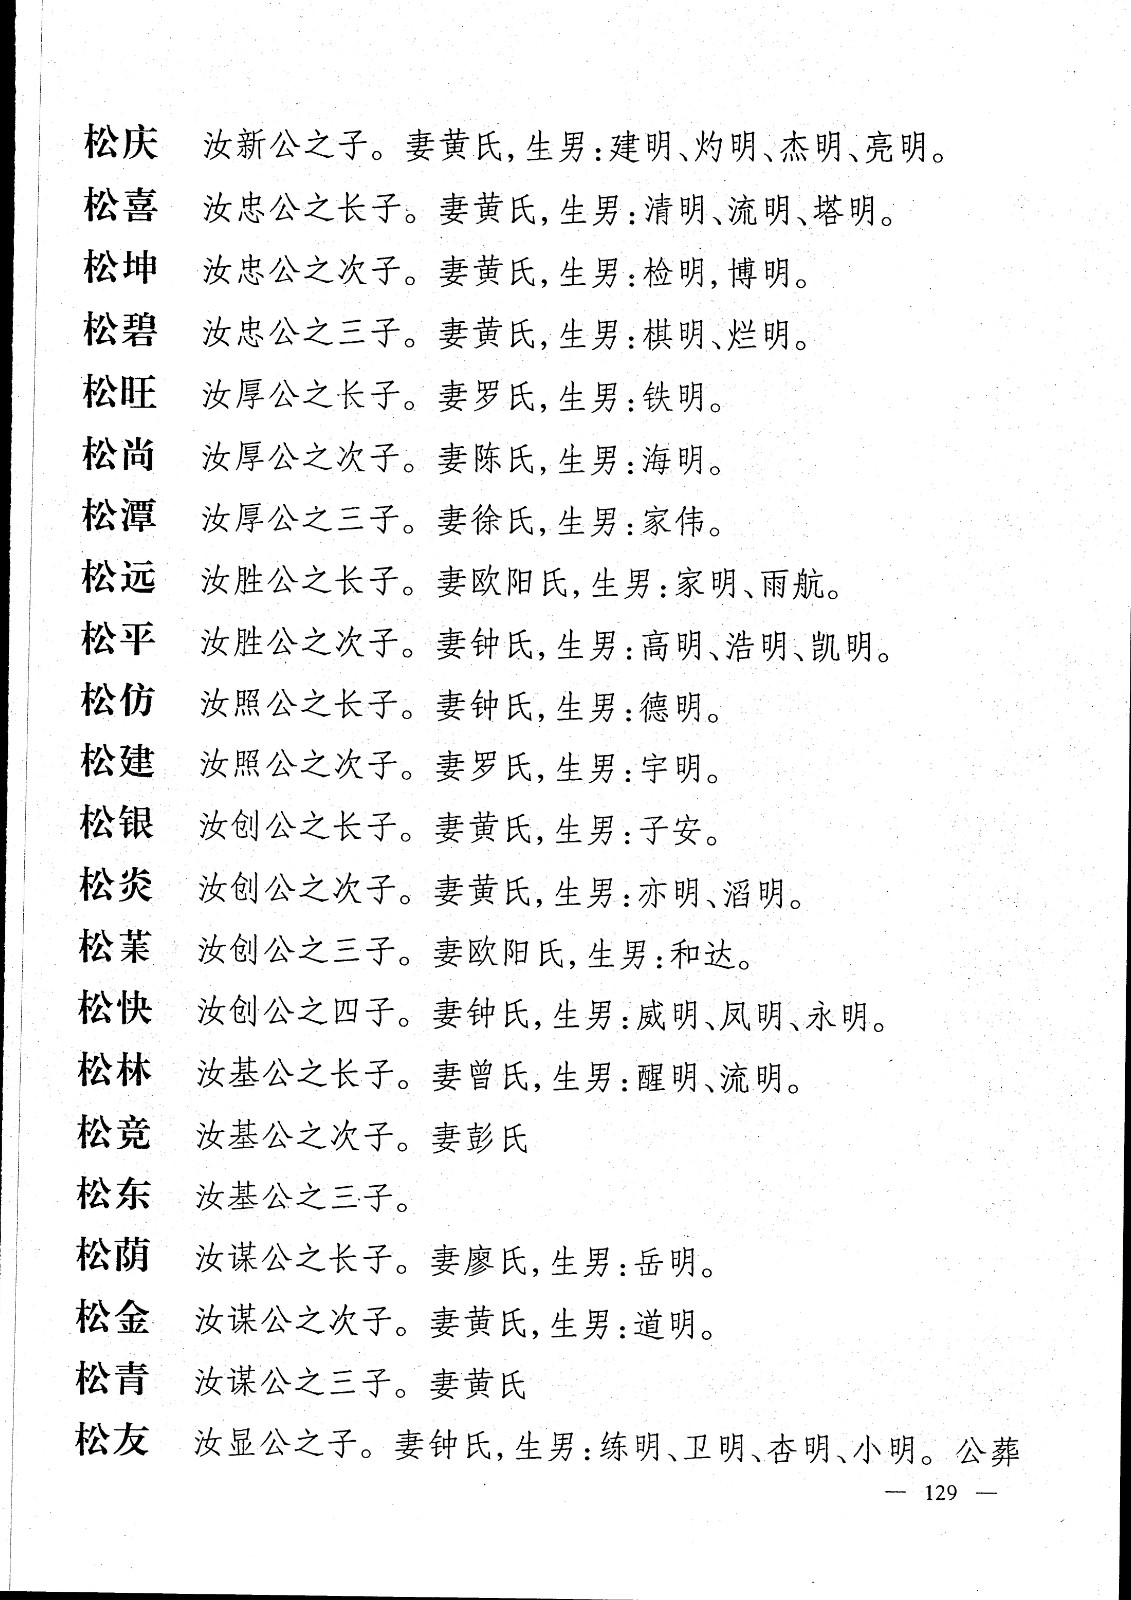 松庆 汝新公之子。妻黄氏,生男:建明、灼明、杰明、亮明。
松喜 汝忠公之长子。妻黄氏,生男:清明、流明、塔明。
松坤 汝忠公之次子。妻黄氏,生男:检明,博明。
松碧 汝忠公之三子。妻黄氏,生男:棋明、烂明。
松旺 汝厚公之长子。妻罗氏,生男:铁明。
松尚 汝厚公之次子。妻陈氏,生男:海明。
松潭 汝厚公之三子。妻徐氏,生男:家伟。
松远 汝胜公之长子。妻欧阳氏,生男:家明、雨航。
松平 汝胜公之次子。妻钟氏,生男:高明、浩明、凯明。
松仿 汝照公之长子。妻钟氏,生男:德明。
松建 汝照公之次子。妻罗氏,生男:宇明。
松银 汝创公之长子。妻黄氏,生男:子安。
松炎 汝创公之次子。妻黄氏,生男:亦明、滔明。
松茉 汝创公之三子。妻欧阳氏,生男:和达。
松快 汝创公之四子。妻钟氏,生男:威明、凤明、永明。
松林 汝基公之长子。妻曾氏,生男:醒明、流明。
松竞 汝基公之次子。妻彭氏
松东 汝基公之三子。
松荫 汝谋公之长子。妻廖氏,生男:岳明。
松金 汝谋公之次子。妻黄氏,生男:道明。
松青 汝谋公之三子。妻黄氏
松友 汝显公之子。妻钟氏,生男:练明、卫明、杏明、小明。公葬
— 129 —